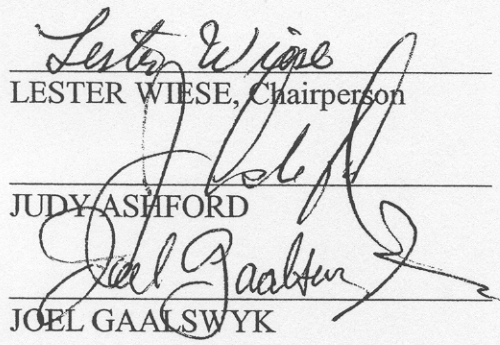 Lester Wiese
LESTER WIESE, Chairperson
JUDY ASHFORD
Joel Gaalswyk
JOEL GAALSWYK